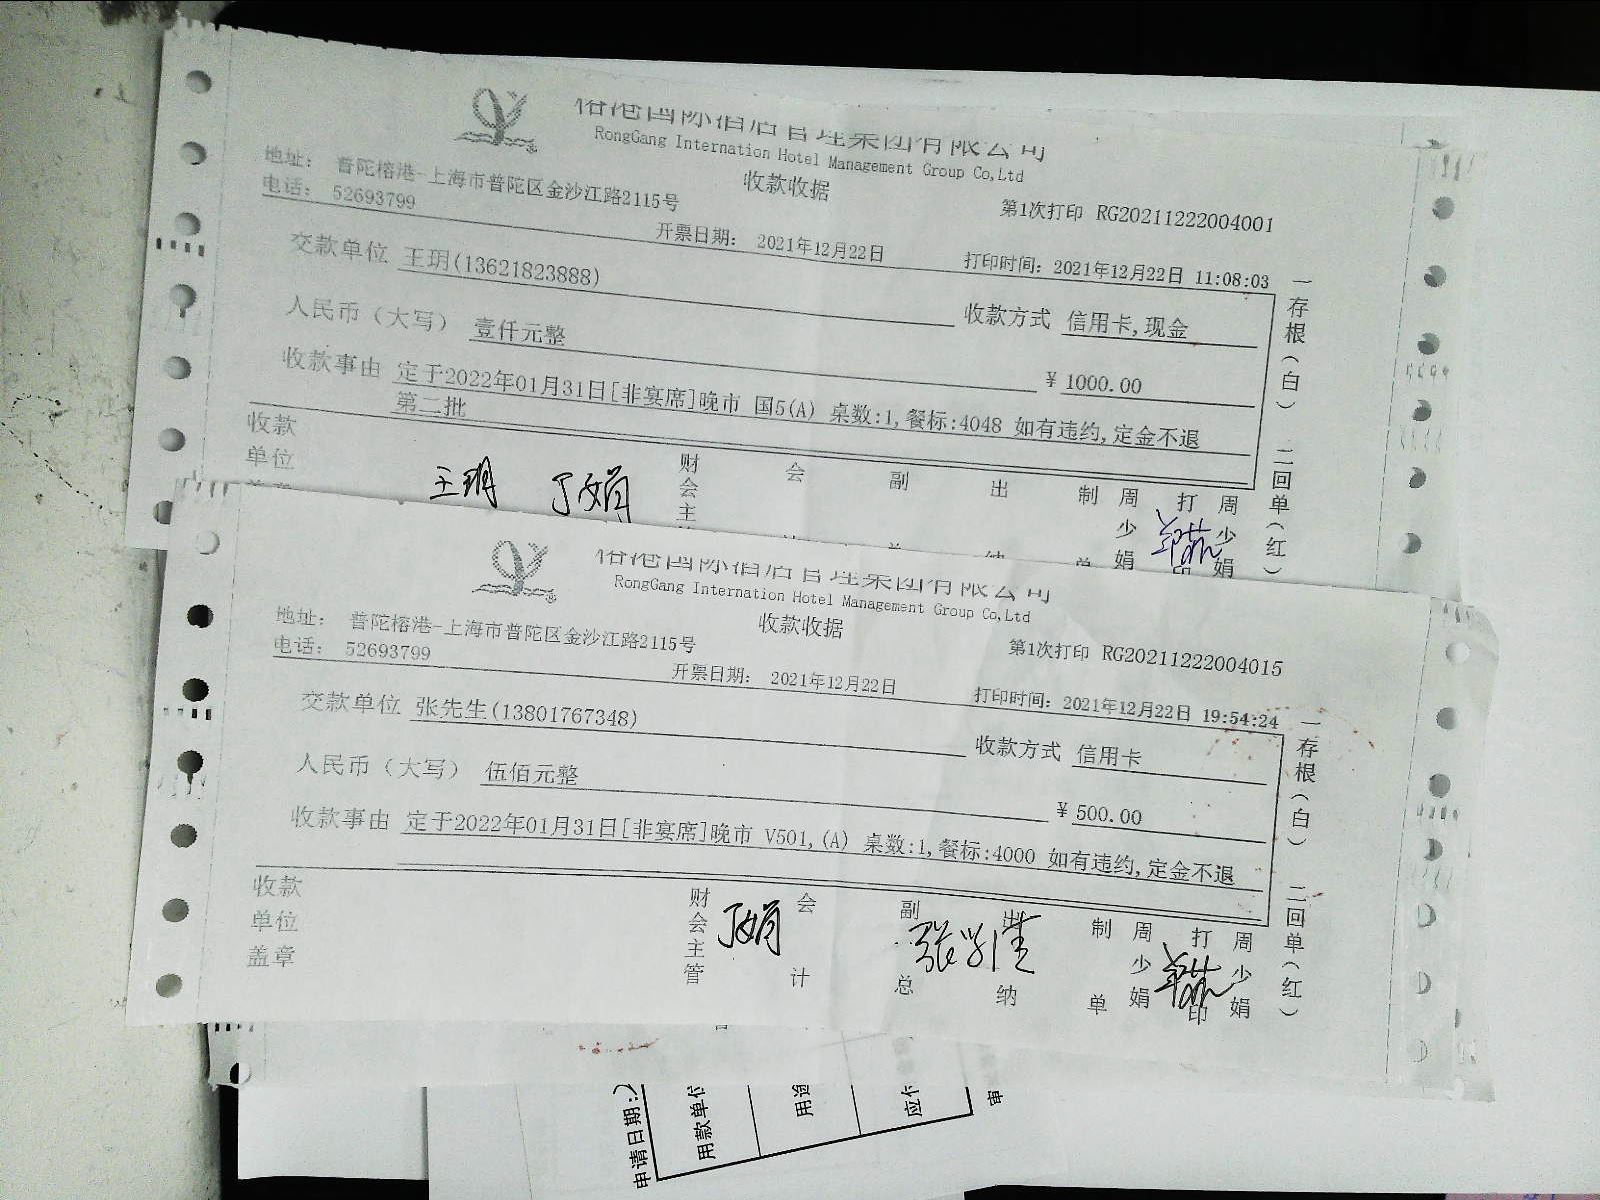 榕港国际酒店管理集团有限公司
RongGang Internation Hotel Management Group Co,Ltd
地址： 普陀榕港-上海市普陀区金沙江路2115号
收款收据
电话： 52693799
第1次打印 RG20211222004001
开票日期： 2021年12月22日
打印时间：2021年12月22日 11:08:03
交款单位 王玥(13621823888)
收款方式 信用卡,现金
人民币（大写） 壹仟元整
¥ 1000.00
收款事由 定于2022年01月31日[非宴席]晚市 国5(A) 桌数:1,餐标:4048 如有违约,定金不退
第二批
一存根（白） 二回单（红）
收款单位
财会主 会 副 出 制单 周少娟 打印 周少娟
王玥 丁娟
榕港国际酒店管理集团有限公司
RongGang Internation Hotel Management Group Co,Ltd
地址： 普陀榕港-上海市普陀区金沙江路2115号
收款收据
电话： 52693799
第1次打印 RG20211222004015
开票日期： 2021年12月22日
打印时间：2021年12月22日 19:54:24
交款单位 张先生(13801767348)
收款方式 信用卡
人民币（大写） 伍佰元整
¥ 500.00
收款事由 定于2022年01月31日[非宴席]晚市 V501,(A) 桌数:1,餐标:4000 如有违约,定金不退
一存根（白） 二回单（红）
收款单位盖章
财会主管 会计 副总 出纳 制单 周少娟 打印 周少娟
丁娟
申请日期：
用款单位
用途
应付
审